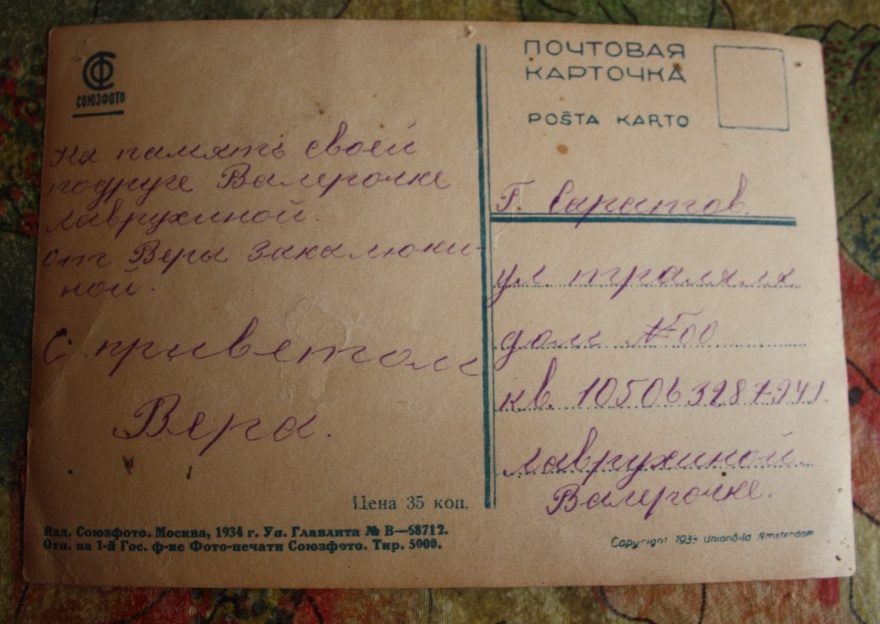 СФ
СОЮЗФОТО
На память своей
подруге Валерочке
Лаврухиной.
от Веры Закалюки-
ной.
С приветом
Вера.
Цена 35 коп.
Изд. Союзфото. Москва, 1934 г. Уп. Главлита № В—68712.
Отп. на 1-й Гос. ф-ке Фото-печати Союзфото. Тир. 5000.
ПОЧТОВАЯ
КАРТОЧКА
POŜTA KARTO
Г. Саратов.
ул. траляля
дом № 00
кв.
Лаврухиной
Валерочке.
Copyright Amsterdam